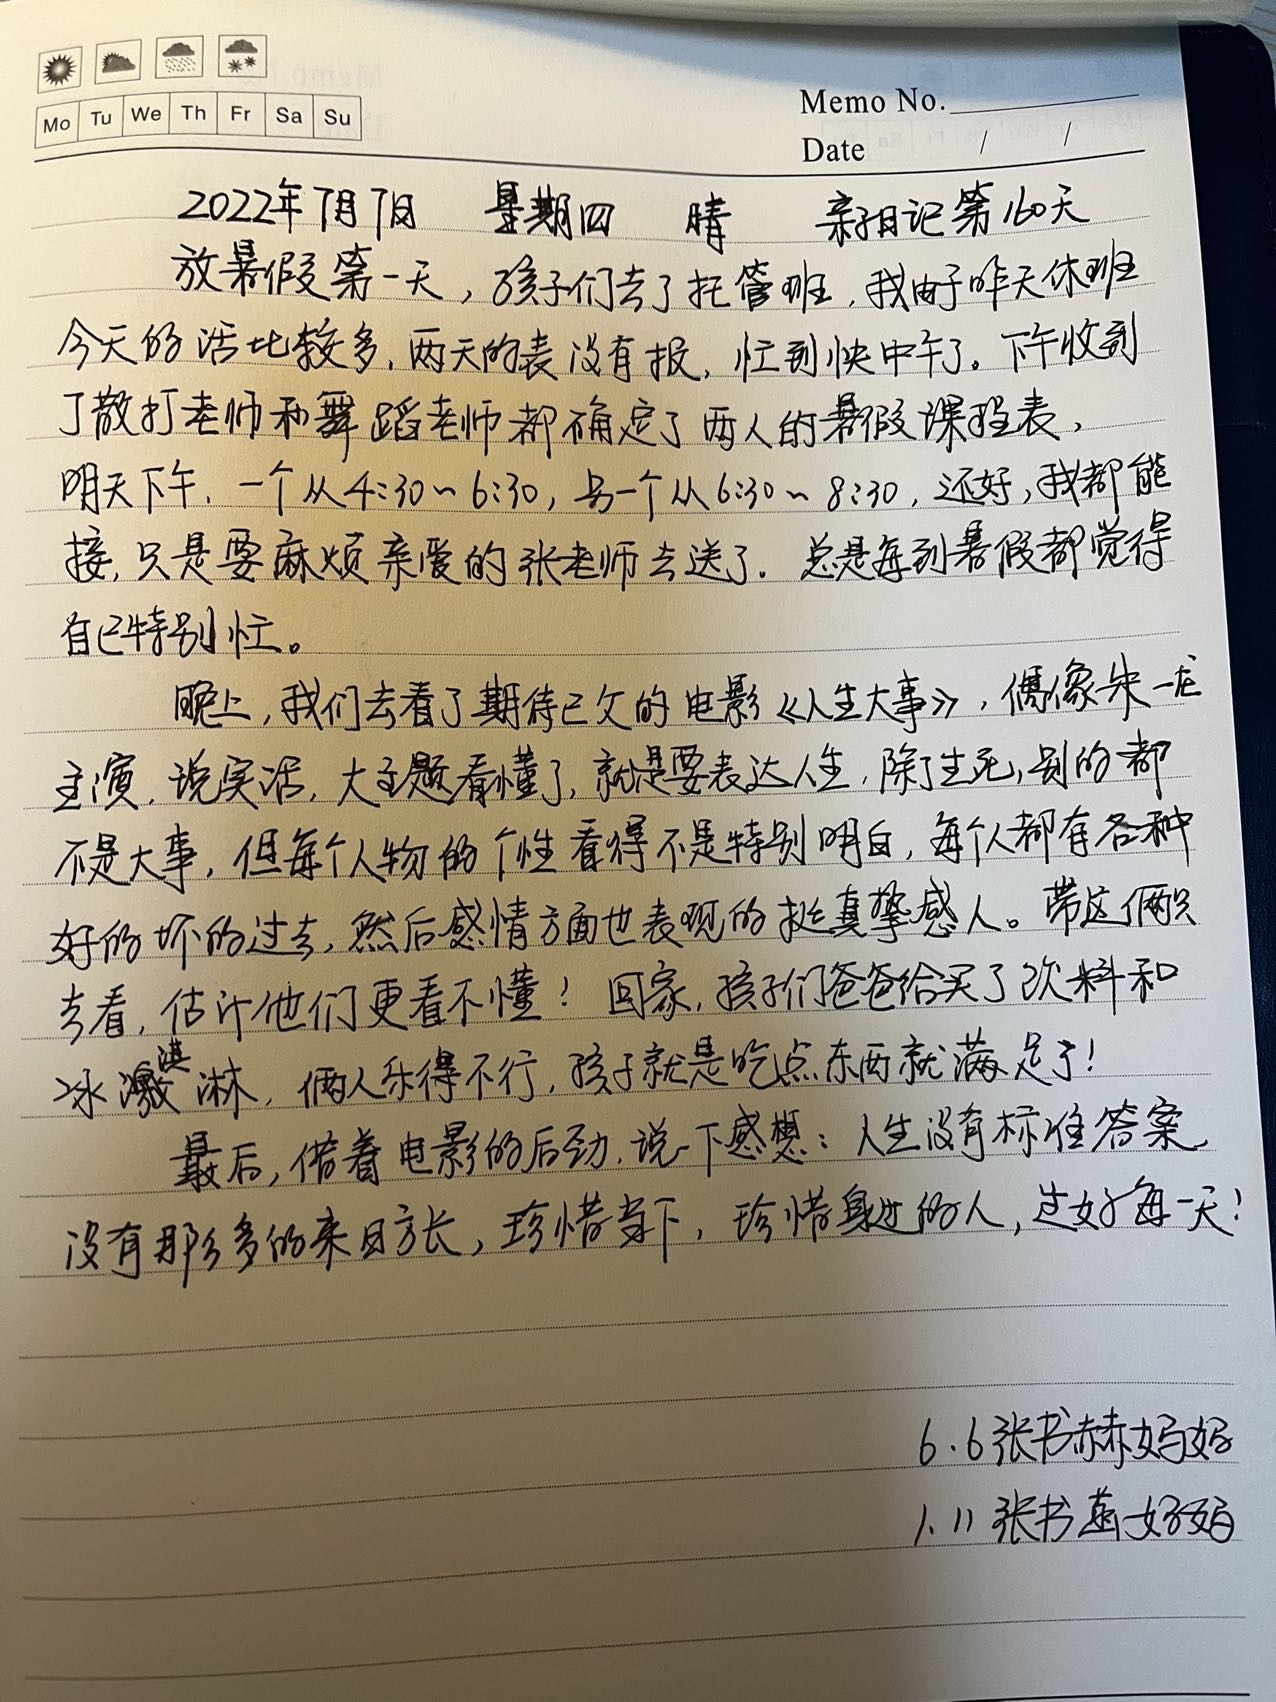 Mo Tu We Th Fr Sa Su
Memo No.
Date / /
2022年7月7日 星期四 晴 亲子日记第160天
放暑假第一天，孩子们去了托管班，我由于昨天休班
今天的活比较多，两天的表没有报，忙到快中午了。下午收到
了散打老师和舞蹈老师都确定了两人的暑假课程表，
明天下午，一个从4:30~6:30，另一个从6:30~8:30，还好，我都能
接，只是要麻烦亲爱的张老师去送了。总是每到暑假都觉得
自己特别忙。
晚上，我们去看了期待已久的电影《人生大事》，偶像朱一龙
主演，说实话，大主题看懂了，就是要表达人生，除了生死，别的都
不是大事，但每个人物的个性看得不是特别明白，每个人都有各种
好的坏的过去，然后感情方面也表现的挺真挚感人。带这俩只
去看，估计他们更看不懂！回家，孩子们爸爸给买了饮料和
冰激淇淋，俩人乐得不行，孩子就是吃点东西就满足了！
最后，借着电影的后劲，说一下感想：人生没有标准答案，
没有那么多的来日方长，珍惜当下，珍惜身边的人，过好每一天！
6.6张书赫妈妈
1.11张书菡妈妈